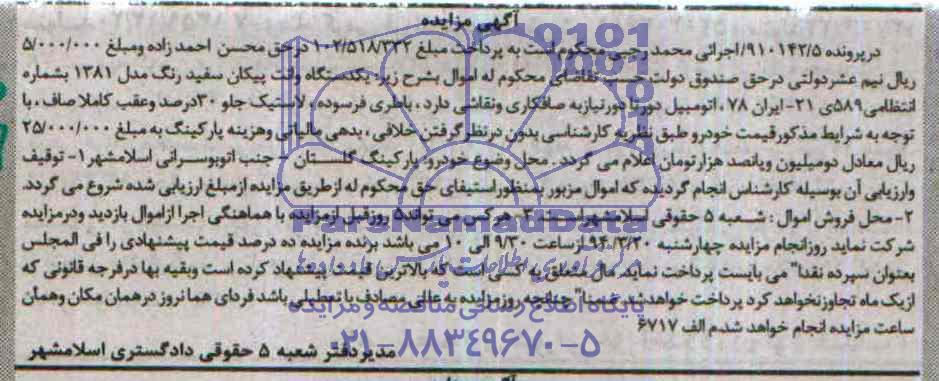 آگهی مزایده
درپرونده ۹۱۰۱۴۲/۵/اجرائی محمد رجبی محکوم است به پرداخت مبلغ ۱۰۲/۵۱۸/۳۳۲ درحق محسن احمدزاده ومبلغ ۵/۰۰۰/۰۰۰
ریال نیم عشردولتی درحق صندوق دولت حسب تقاضای محکوم له اموال بشرح زیر: یکدستگاه وانت پیکان سفید رنگ مدل ۱۳۸۱ بشماره
انتظامی ۵۸۹ی ۲۱- ایران ۷۸ ، اتومبیل دورتا دورنیازبه صافکاری ونقاشی دارد ، باطری فرسوده ، لاستیک جلو ۳۰درصد وعقب کاملا صاف ، با
توجه به شرایط مذکورقیمت خودرو طبق نظریه کارشناسی بدون درنظرگرفتن خلافی ، بدهی مالیاتی وهزینه پارکینگ به مبلغ ۲۵/۰۰۰/۰۰۰
ریال معادل دومیلیون وپانصد هزارتومان اعلام می گردد . محل وضوع خودرو: پارکینگ گلستان - جنب اتوبوسرانی اسلامشهر ۱- توقیف
وارزیابی آن بوسیله کارشناس انجام گردیده که اموال مزبور بمنظوراستیفای حق محکوم له ازطریق مزایده ازمبلغ ارزیابی شده شروع می گردد.
۲- محل فروش اموال : شعبه ۵ حقوقی اسلامشهراست ۳- هرکس می تواند۵ روزقبل ازمزایده با هماهنگی اجرا ازاموال بازدید ودرمزایده
شرکت نماید روزانجام مزایده چهارشنبه ۹۴/۳/۲۰ ازساعت ۹/۳۰ الی ۱۰ می باشد برنده مزایده ده درصد قیمت پیشنهادی را فی المجلس
بعنوان سپرده نقدا" می بایست پرداخت نماید. مال متعلق به کسی است که بالاترین قیمت پیشنهاد کرده است وبقیه بها درفرجه قانونی که
ازیک ماه تجاوزنخواهد کرد پرداخت خواهدشد ضمنا" چنانچه روزمزایده به عللی مصادف با تعطیلی باشد فردای همانروز درهمان مکان وهمان
ساعت مزایده انجام خواهد شد.م الف ۶۷۱۷
مدیردفتر شعبه ۵ حقوقی دادگستری اسلامشهر
ParsNamadData
پایگاه اطلاع رسانی مناقصه و مزایده
۰۲۱-۸۸۳۴۹۶۷۰-۵